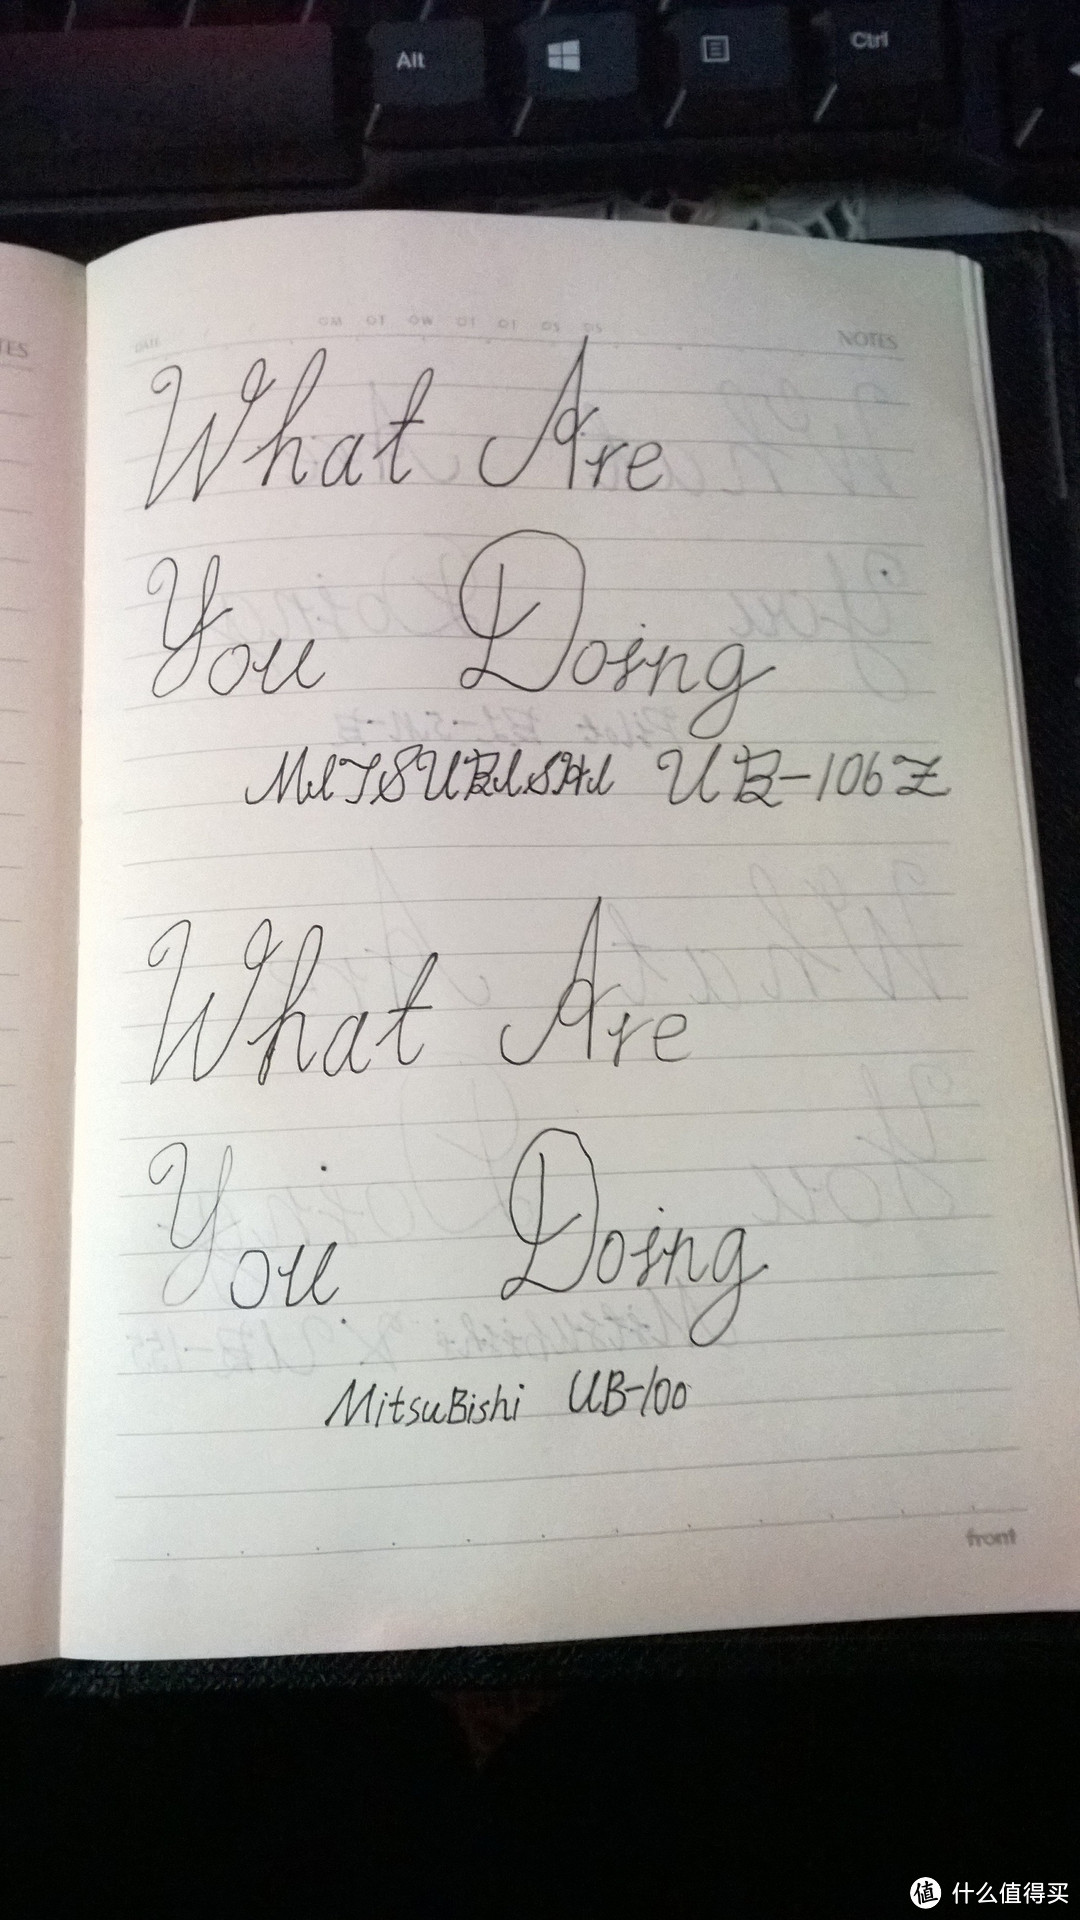 Alt Ctrl
TES
DATE NOTES
What Are
You Doing
MITSUBISHI UB-106Z
What Are
You Doing
MitsuBishi UB-100
front
值 什么值得买